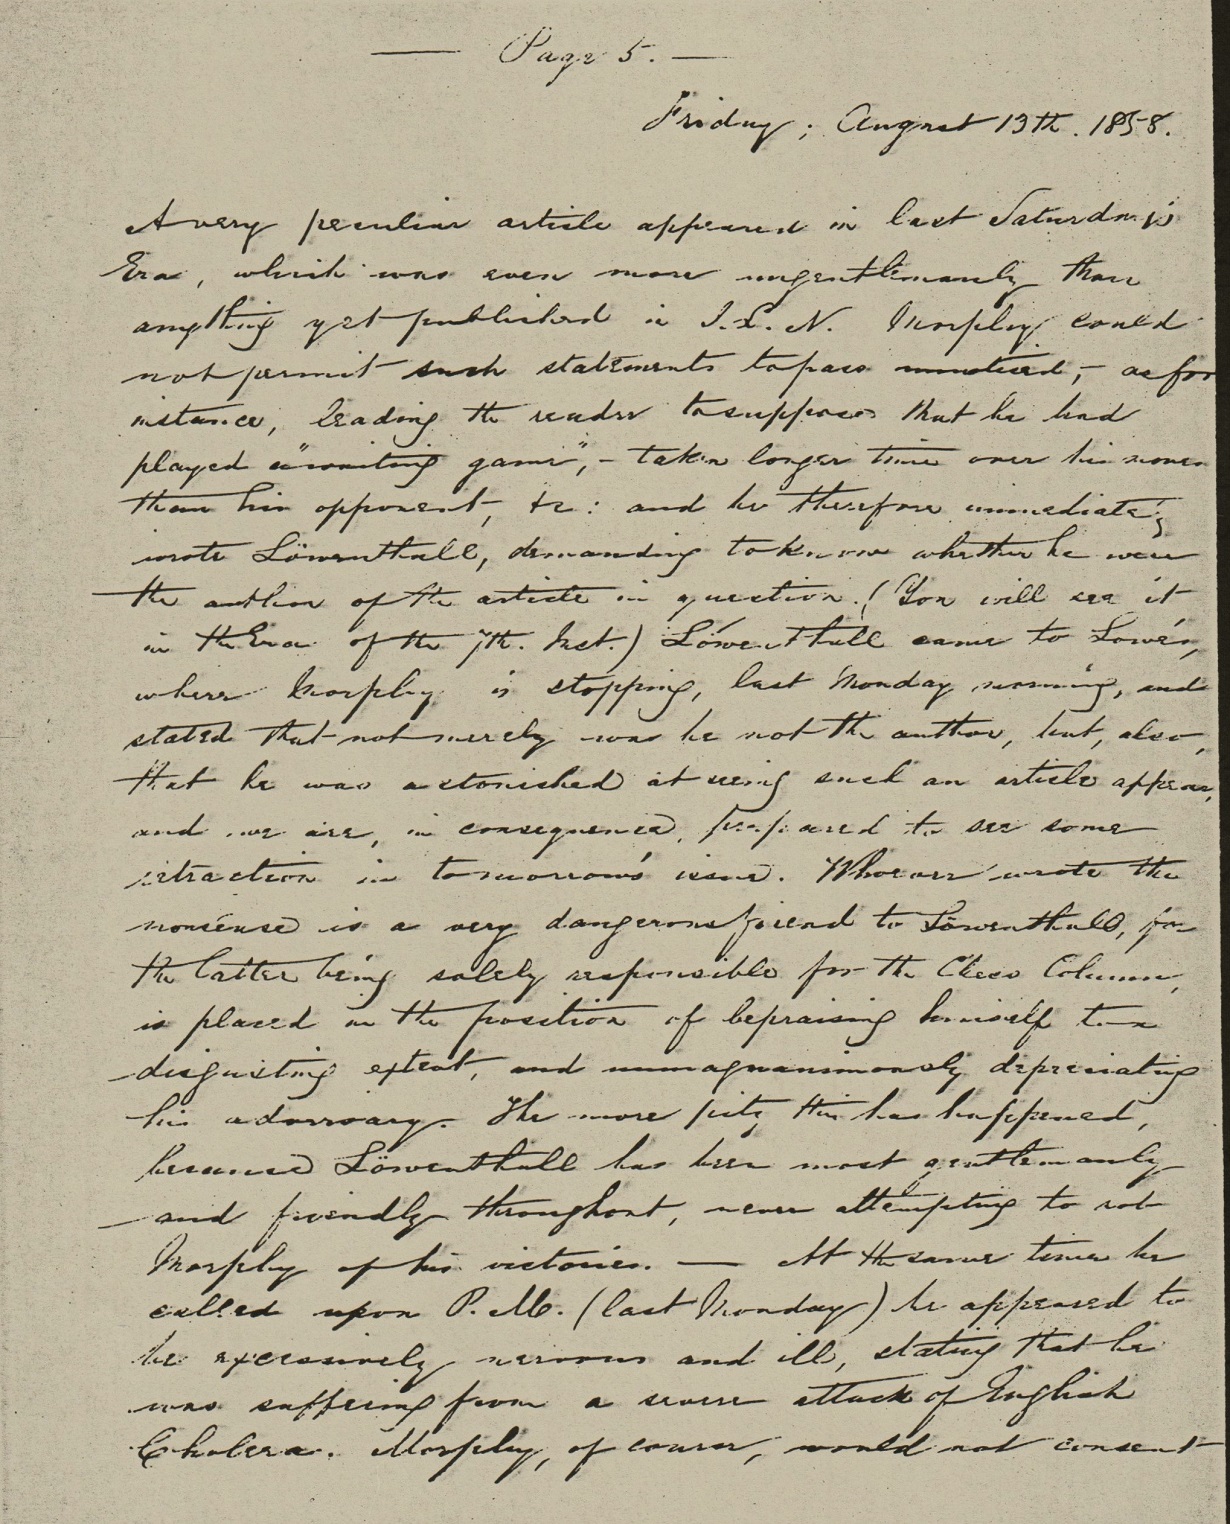 — Page 5. —
Friday; August 13th. 1858.
A very peculiar article appeared in last Saturday's
Era, which was even more ungentlemanly than
anything yet published in I.L.N. Morphy could
not permit such statements to pass unnoticed,- as for
instance, leading the reader to suppose that he had
played a "waiting game",- taken longer time over his moves
than his opponent, &c: and he therefore immediately
wrote Löwenthall, demanding to know whether he were
the author of the article in question. (You will see it
in the Era of the 7th. Inst.) Löwenthall came to Lowe's,
where Morphy is stopping, last Monday morning, and
stated that not merely was he not the author, but, also,
that he was astonished at seeing such an article appear,
and we are, in consequence, prepared to see some
retraction in tomorrow's issue. Whoever wrote the
nonsense is a very dangerous friend to Löwenthall, for
the latter being solely responsible for the Chess Column,
is placed in the position of bepraising himself to a
disgusting extent, and unmagnanimously depreciating
his adversary. The more pity this has happened,
because Löwenthall has been most gentlemanly
and friendly throughout, never attempting to rob
Morphy of his victories. — At the same time he
called upon P.M. (last Monday) he appeared to
be excessively nervous and ill, stating that he
was suffering from a severe attack of English
Cholera. Morphy, of course, would not consent